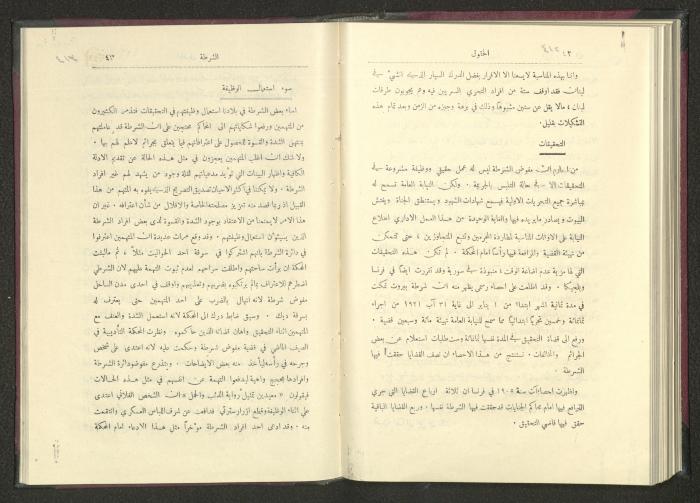 ٤٢
الحقوق
واننا بهذه المناسبة لا يسعنا الا الاقرار بفضل الدرك السيار الذي أنشئ في
لبنان فقد اوقف ستة من افراد التحري السريين فيه وهم يجوبون طرقات
لبنان ما لا يقل عن ستين مشبوهاً وذلك في برهة وجيزة من الزمن وبعد تمام هذه
التشكيلات بقليل.
التحقيقات
من المعلوم ان مفوض الشرطة ليس له عمل حقيقي ووظيفة مشروعة في
التحقيقات الا في حالة التلبس بالجريمة. ولكن النيابة العامة تسمح له
بمباشرة جميع التحريات الاولية فيسمع شهادات الشهود ويستنطق الجناة ويفتش
البيوت ويصادر ما يريده فيها والغاية الوحيدة من هذا العمل الاداري اطلاع
النيابة على الاوقات المناسبة لمطاردة المجرمين وقمع المتجاوزين، حتى تتمكن
من تهيئة القضية والمرافعة فيها رأساً امام المحكمة. لم تكن هذه التحقيقات
التي لها مزية عدم اضاعة الوقت، منبوذة في سورية وقد تقررت ايضاً في فرنسا
وبلجيكا. وقد اطلعت على احصاء رسمي يظهر منه ان شرطة بيروت تمكنت
في مدة ثمانية اشهر ابتداءً من ١ يناير الى غاية ٣١ آب ١٩٢١ من اجراء
ثمانمائة وخمسين تحرياً ابتدائياً مما سمح للنيابة العامة تهيئة مائة وسبعين قضية.
ورفع الى قضاة التحقيق في المدة نفسها ثمانمائة وست طلبات استعلام عن بعض
الجرائم والمخالفات. نستنتج من هذا الاحصاء ان نصف القضايا حققت فيها
الشرطة.
واظهرت احصاءات سنة ١٩٠٥ في فرنسا ان ثلاثة ارباع القضايا التي جرى
القرار فيها امام محاكم الجنايات قد حققت فيها الشرطة نفسها. وربع القضايا الباقية
حقق فيها قاضي التحقيق.
الشرطة
٤٣
سوء استعمال الوظيفة
اساء بعض الشرطة في بلادنا استعمال وظيفتهم في التحقيقات فتذمر الكثيرون
من المتهمين ورفعوا شكاياتهم الى المحاكم محتجين على ان الشرطة قد عاملتهم
بمنتهى الشدة والقسوة للحصول على اعترافاتهم فيما يتعلق بجرائم لا علم لهم بها.
ولا شك ان اغلب المتهمين يعجزون في مثل هذه الحالة عن تقديم الادلة
الكافية واظهار البينات التي تؤيد مدعياتهم لقلة وجود من يشهد لهم غير افراد
الشرطة. ولا يمكننا في اكثر الاحيان تصديق التصريح الذي يفوه به المتهم من هذا
القبيل اذ ربما قصد منه تعزيز مصلحته الخاصة والاقلال من شأن اعترافه. غير ان
هذا الامر لا يمنعنا من الاعتقاد بوجود الشدة والقسوة لدى بعض افراد الشرطة
الذين يسيئون استعمال وظيفتهم. وقد وقع مرات عديدة ان المتهمين اعترفوا
في دائرة الشرطة بانهم اشتركوا في سرقة احد الحوانيت مثلاً، ثم ما لبثت
المحكمة ان برأت ساحتهم واطلقت سراحهم لعدم ثبوت التهمة عليهم لان الشرطي
اضطرهم للاعتراف بما لم يرتكبوه بضربهم وتعذيبهم واوقف في احدى مدن الساحل
مفوض شرطة لانه انهال بالضرب على احد المتهمين حتى يعترف له
بسرقة ديك. وسيق ضابط درك الى المحكمة لانه استعمل الشدة والعنف مع
المتهمين اثناء التحقيق واهان قضاته الذين حاكموه. ونظرت المحكمة التأديبية في
الصيف الماضي في قضية مفوض شرطة وحكمت عليه لانه اعتدى على شخص
وجرحه في رأسه ليأخذ منه بعض الايضاحات. ويتذرع مفوضو دائرة الشرطة
وافرادها بحجج واهية ليدفعوا التهمة عن انفسهم في مثل هذه الحالات
فيقولون «معيدين تمثيل رواية الذئب والحمل» ان الشخص الفلاني اعتدى
علي اثناء الوظيفة وقطع ازرار سترتي فدافعت عن شرف اللباس العسكري وانتقمت
منه. وقد ادعى احد افراد الشرطة مؤخراً مثل هذا الادعاء امام المحكمة